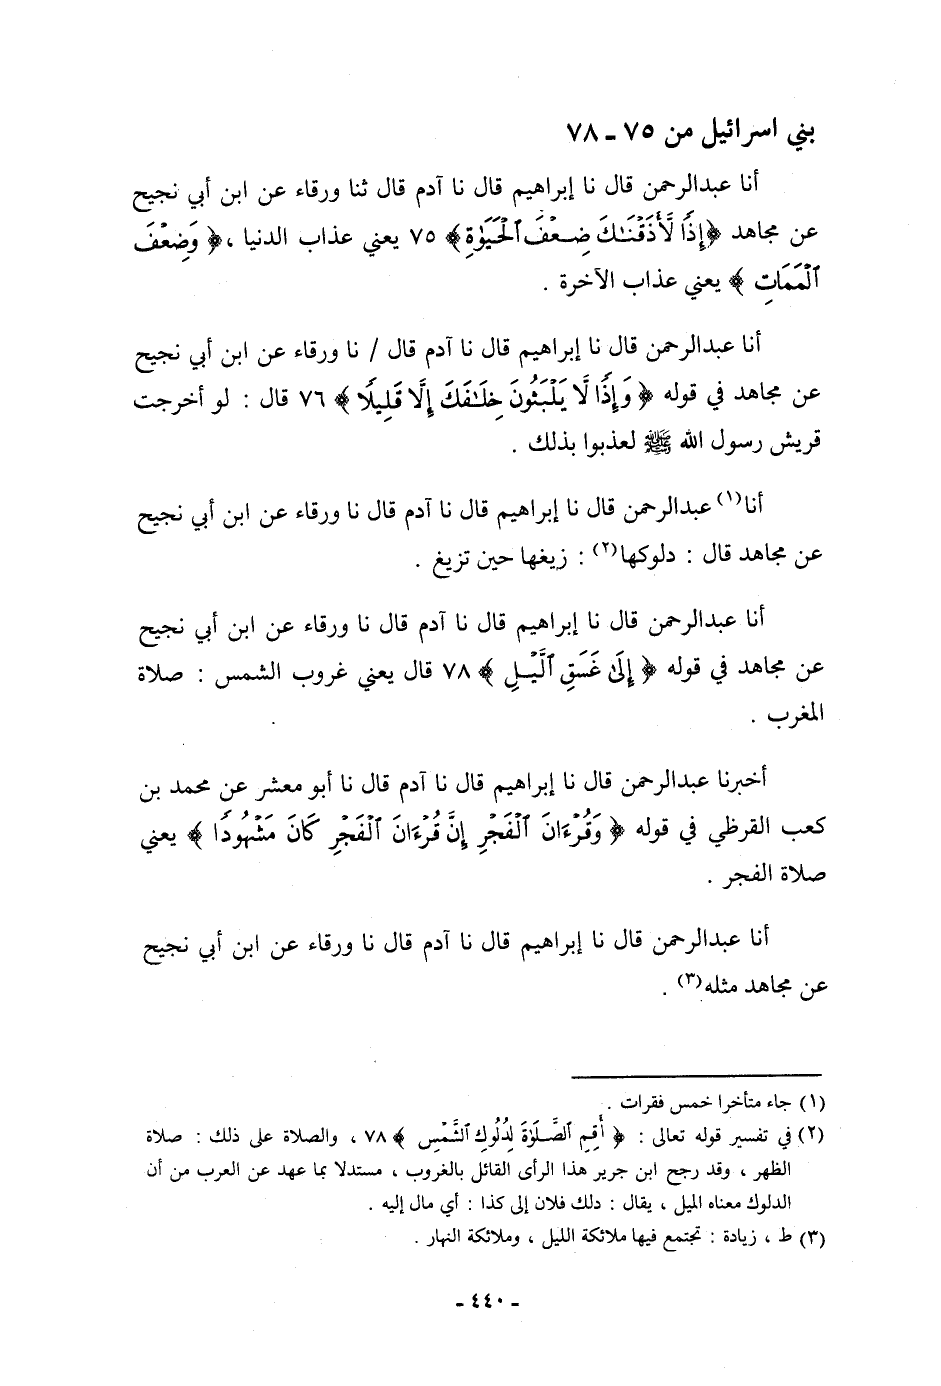 بني اسرائيل من ٧٥ ـ ٧٨
أنا عبدالرحمن قال نا إبراهيم قال نا آدم قال ثنا ورقاء عن ابن أبي نجيح
عن مجاهد ﴿إِذًا لَّأَذَقْنَـٰكَ ضِعْفَ ٱلْحَيَوٰةِ﴾ ٧٥ يعني عذاب الدنيا ، ﴿ وَضِعْفَ
ٱلْمَمَاتِ ﴾ يعني عذاب الآخرة .
أنا عبدالرحمن قال نا إبراهيم قال نا آدم قال / نا ورقاء عن ابن أبي نجيح
عن مجاهد في قوله ﴿ وَإِذًا لَّا يَلْبَثُونَ خِلَـٰفَكَ إِلَّا قَلِيلًا ﴾ ٧٦ قال : لو أخرجت
قريش رسول الله ﷺ لعذبوا بذلك .
أنا(١) عبدالرحمن قال نا إبراهيم قال نا آدم قال نا ورقاء عن ابن أبي نجيح
عن مجاهد قال : دلوكها(٢) : زيغها حين تزيغ .
أنا عبدالرحمن قال نا إبراهيم قال نا آدم قال نا ورقاء عن ابن أبي نجيح
عن مجاهد في قوله ﴿ إِلَىٰ غَسَقِ ٱلَّيْلِ ﴾ ٧٨ قال يعني غروب الشمس : صلاة
المغرب .
أخبرنا عبدالرحمن قال نا إبراهيم قال نا آدم قال نا أبو معشر عن محمد بن
كعب القرظي في قوله ﴿ وَقُرْءَانَ ٱلْفَجْرِ إِنَّ قُرْءَانَ ٱلْفَجْرِ كَانَ مَشْهُودًا ﴾ يعني
صلاة الفجر .
أنا عبدالرحمن قال نا إبراهيم قال نا آدم قال نا ورقاء عن ابن أبي نجيح
عن مجاهد مثله(٣) .
(١) جاء متأخرا خمس فقرات .
(٢) في تفسير قوله تعالى : ﴿ أَقِمِ ٱلصَّلَوٰةَ لِدُلُوكِ ٱلشَّمْسِ ﴾ ٧٨ ، والصلاة على ذلك : صلاة
الظهر ، وقد رجح ابن جرير هذا الرأى القائل بالغروب ، مستدلا بما عهد عن العرب من أن
الدلوك معناه الميل ، يقال : دلك فلان إلى كذا : أي مال إليه .
(٣) ط ، زيادة : تجتمع فيها ملائكة الليل ، وملائكة النهار .
ـ ٤٤٠ ـ